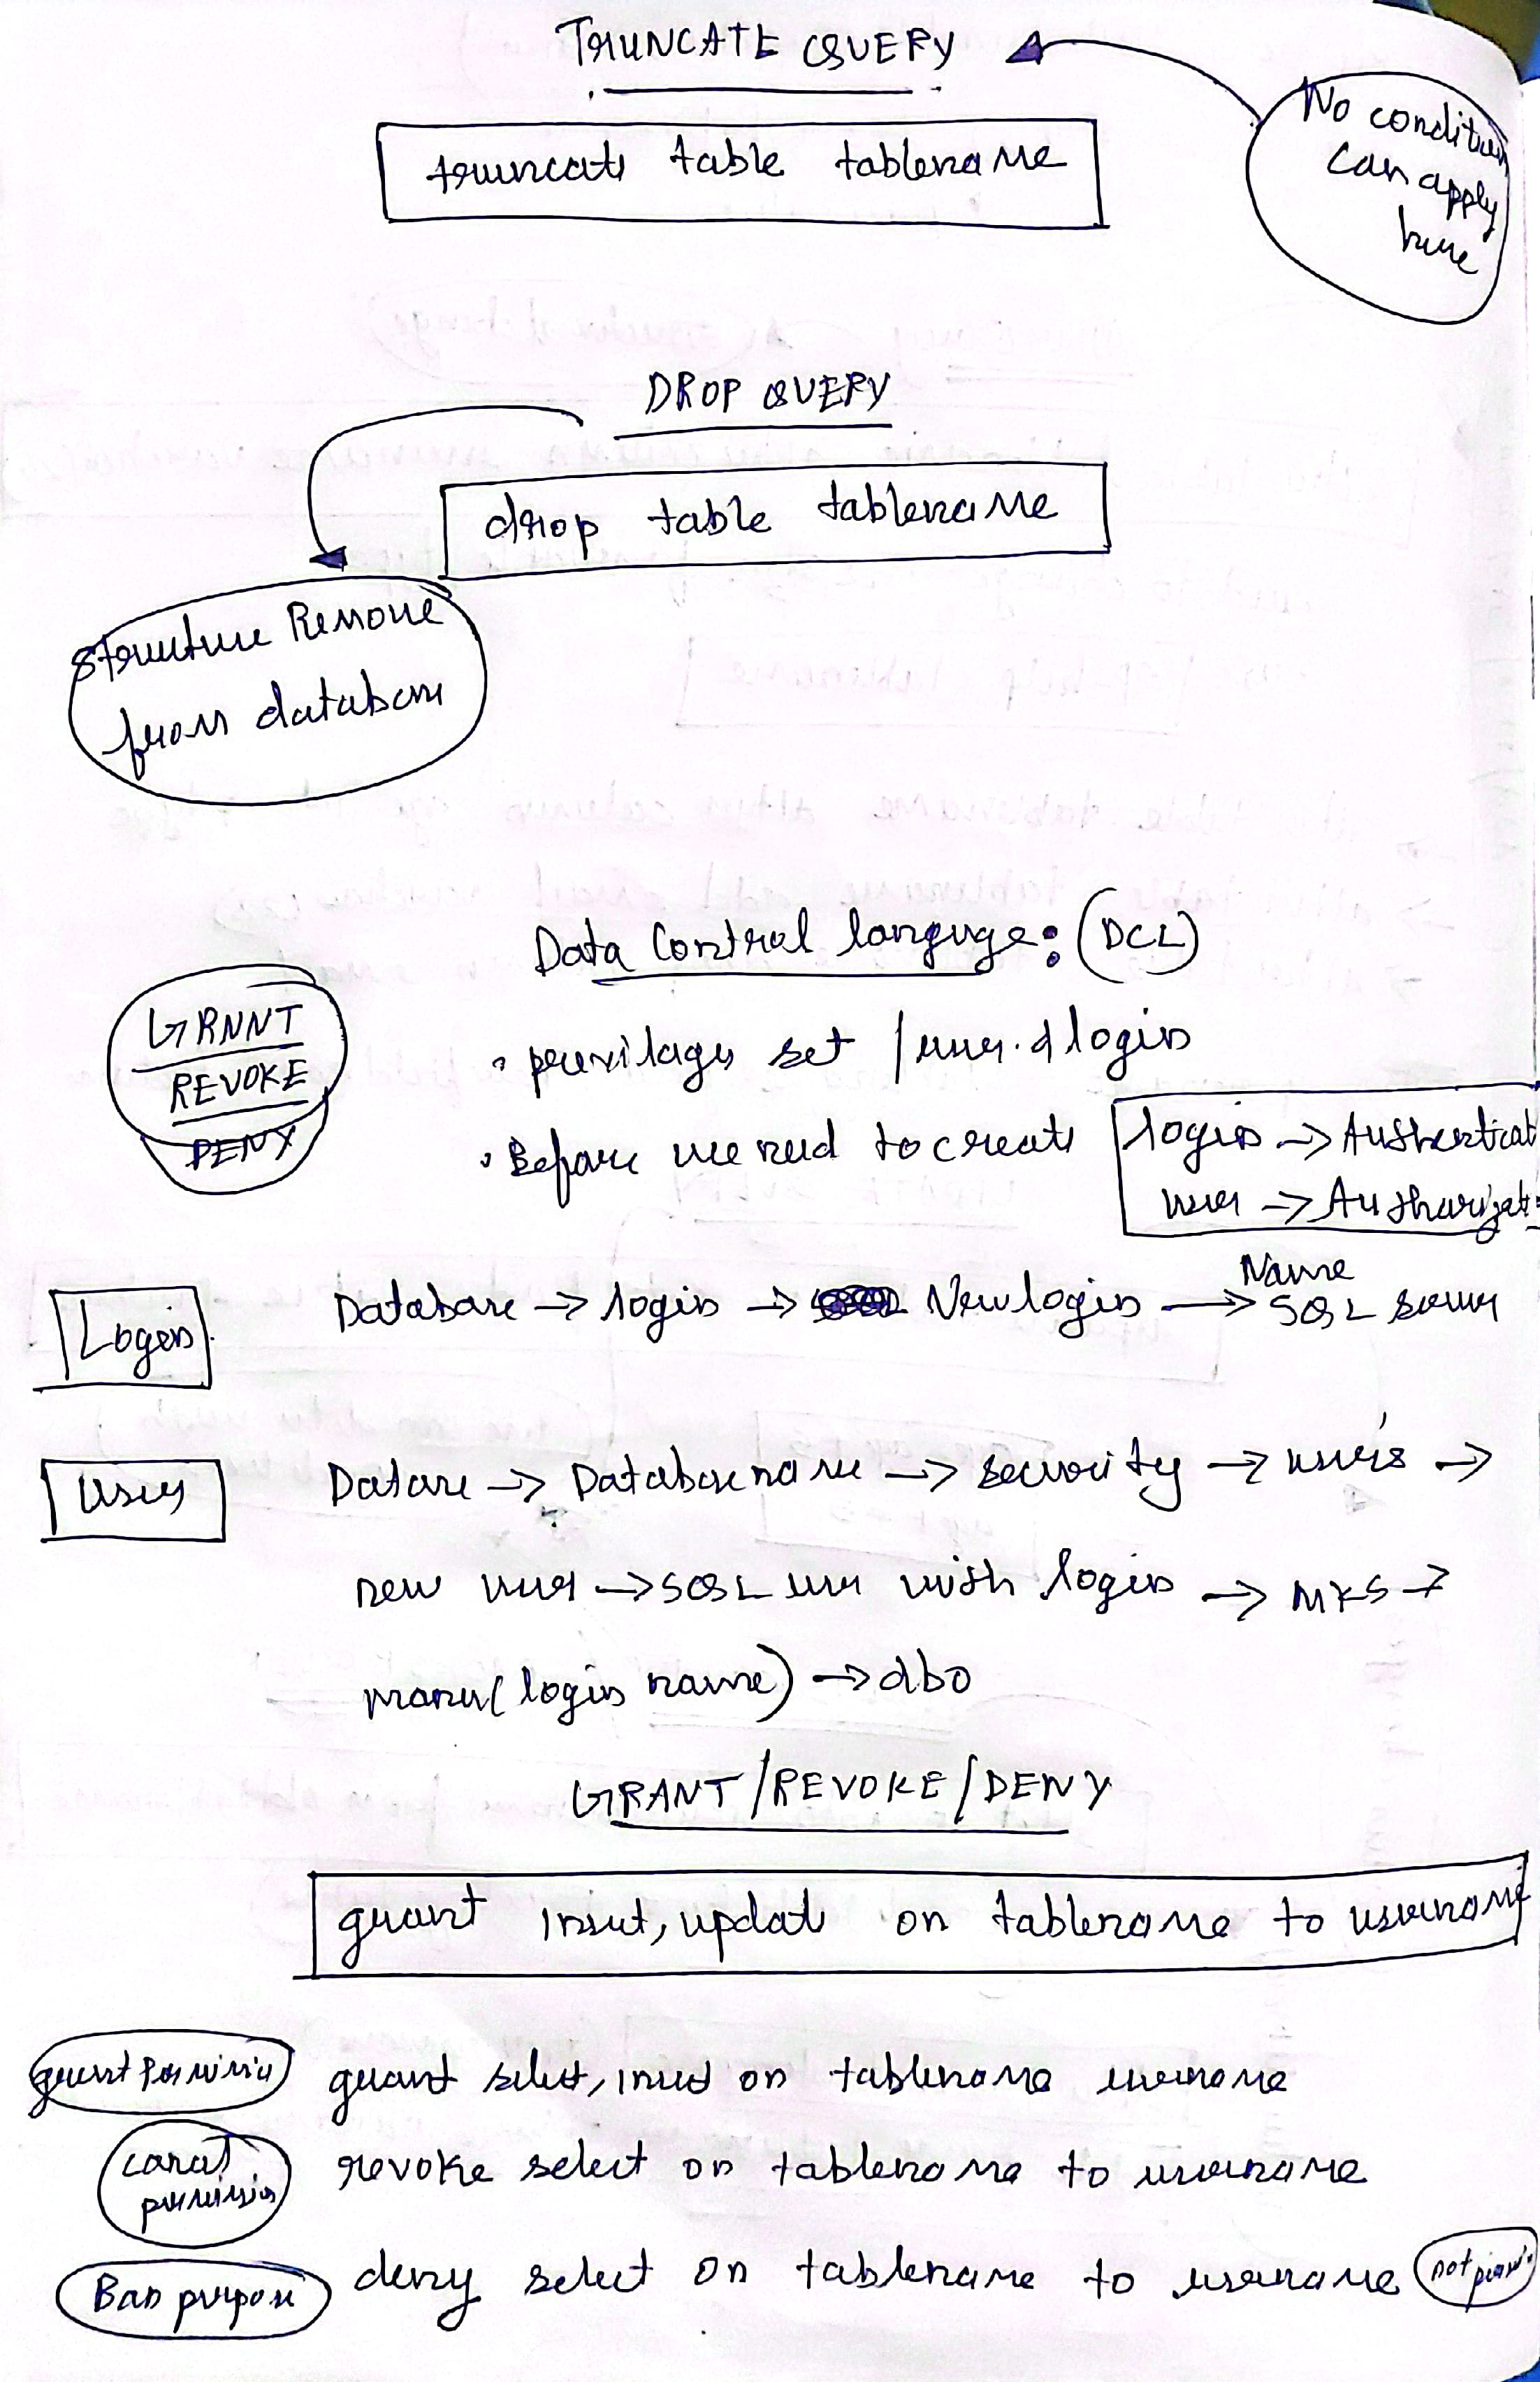 TRUNCATE QUERY
No condition
can apply
here
truncate table tablename
DROP QUERY
drop table tablename
Structure Remove
from database
Data Control languge: (DCL)
GRNNT
REVOKE
DENY
• previlages set / login
• Before we need to create
login → Authenticat
user → Authorizat
Login
Database → login → New login → Name SQL server
User
Datase → Database name → security → users →
new user → SQL user with login → MKS →
(login name) → dbo
GRANT/REVOKE/DENY
grant insert, update on tablename to username
grant Permissio
grant select, insert on tablename username
permission
revoke select on tablename to username
Ban purpose
deny select on tablename to username
not